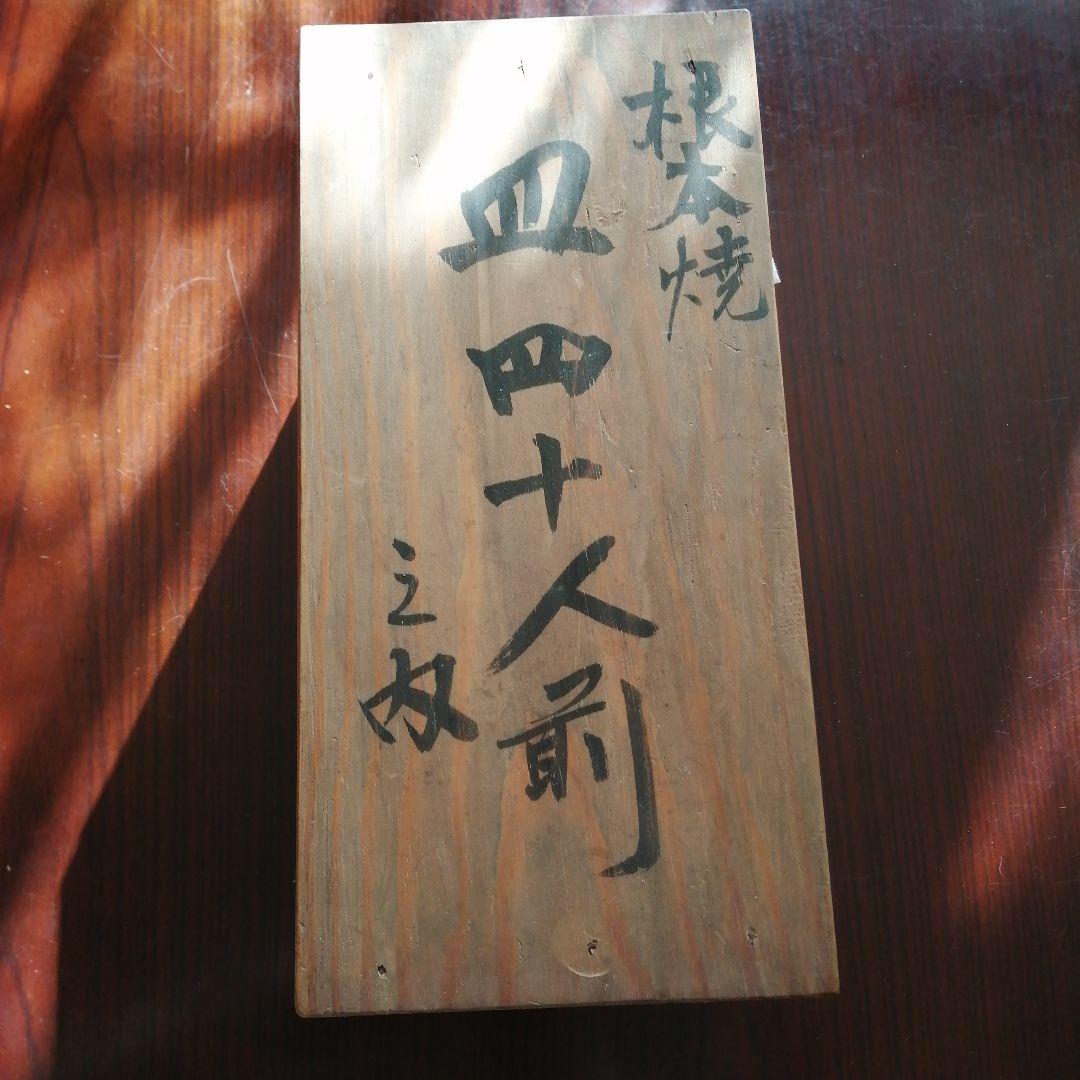 根本焼
皿四十人前
之内